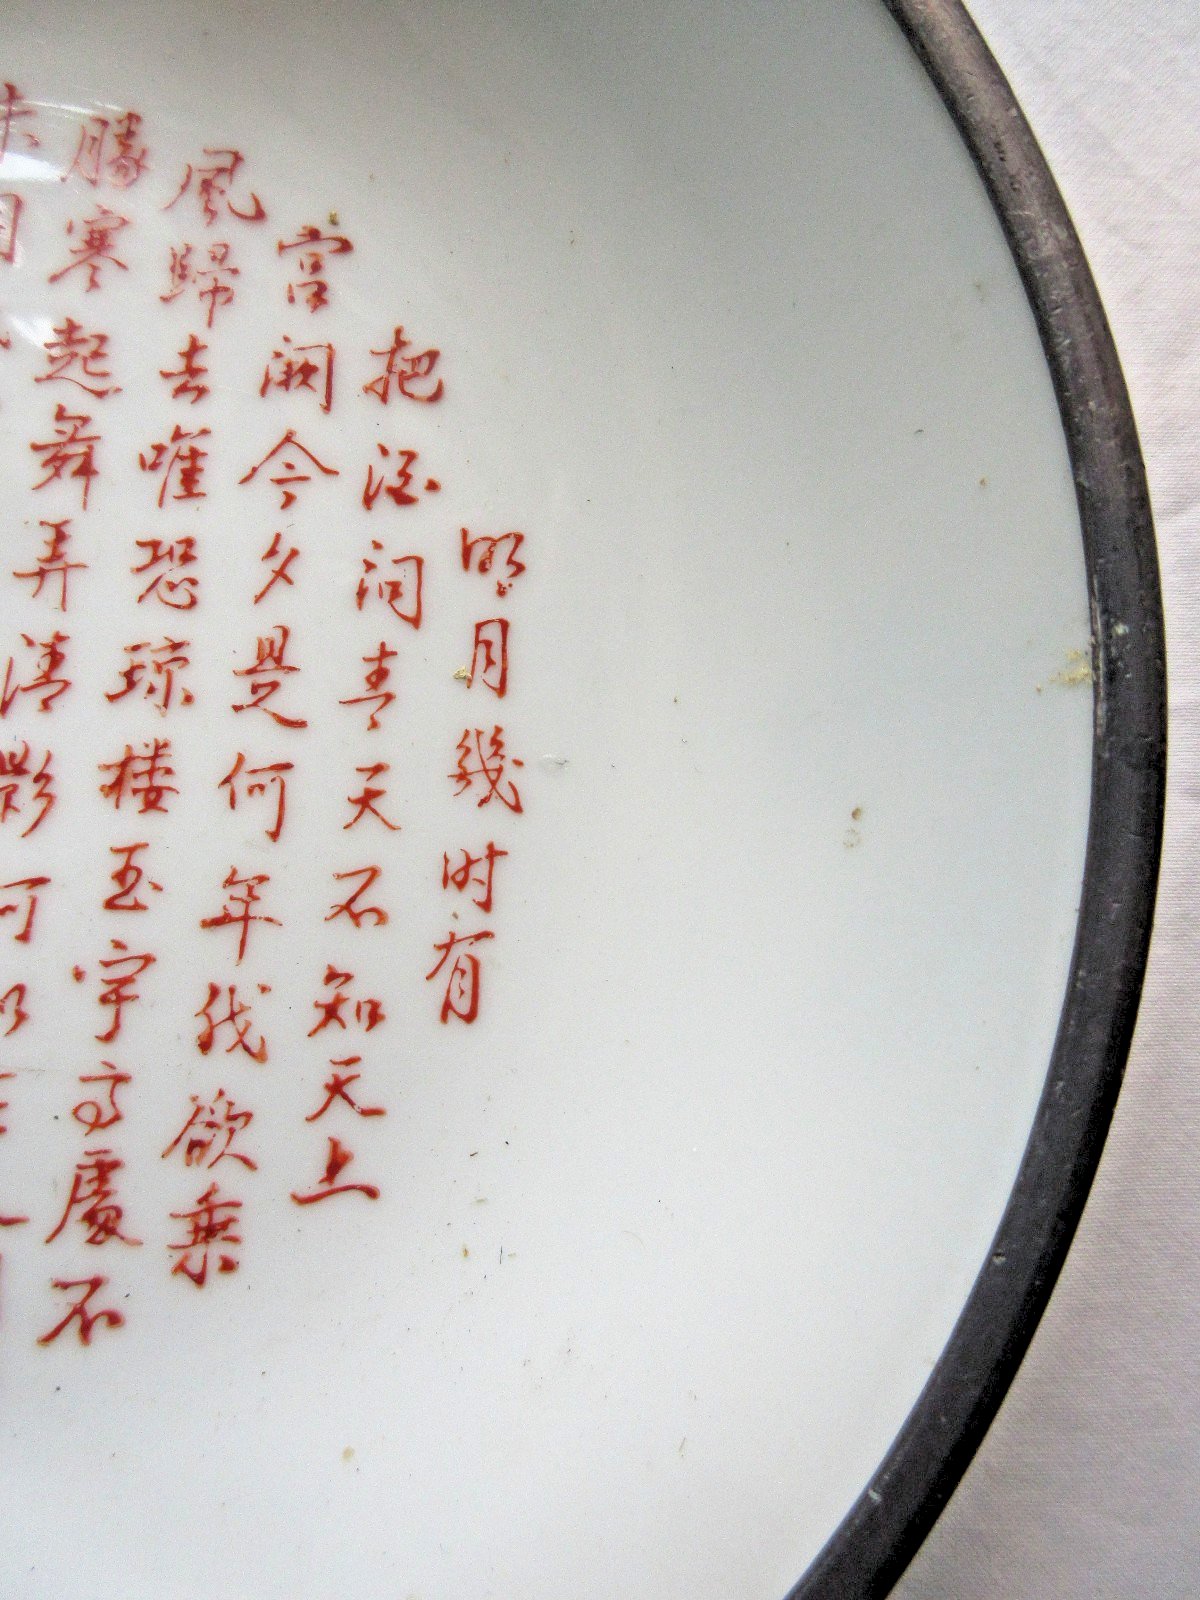 明月幾时有
把酒问青天不知天上
宫阙今夕是何年我欲乘
風歸去唯恐琼楼玉宇高處不
勝寒起舞弄清影